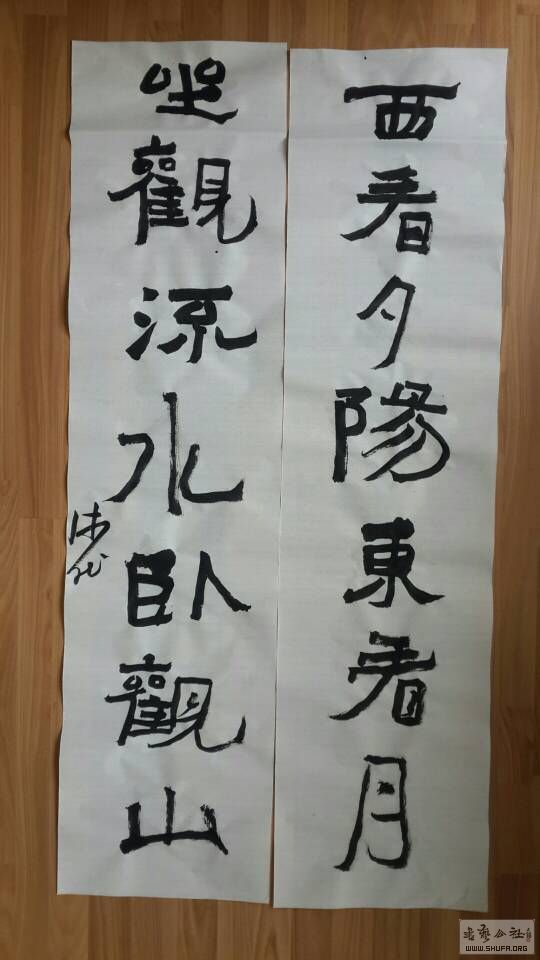 西看夕陽東看月
坐觀流水臥觀山
WWW.SHUFA.ORG